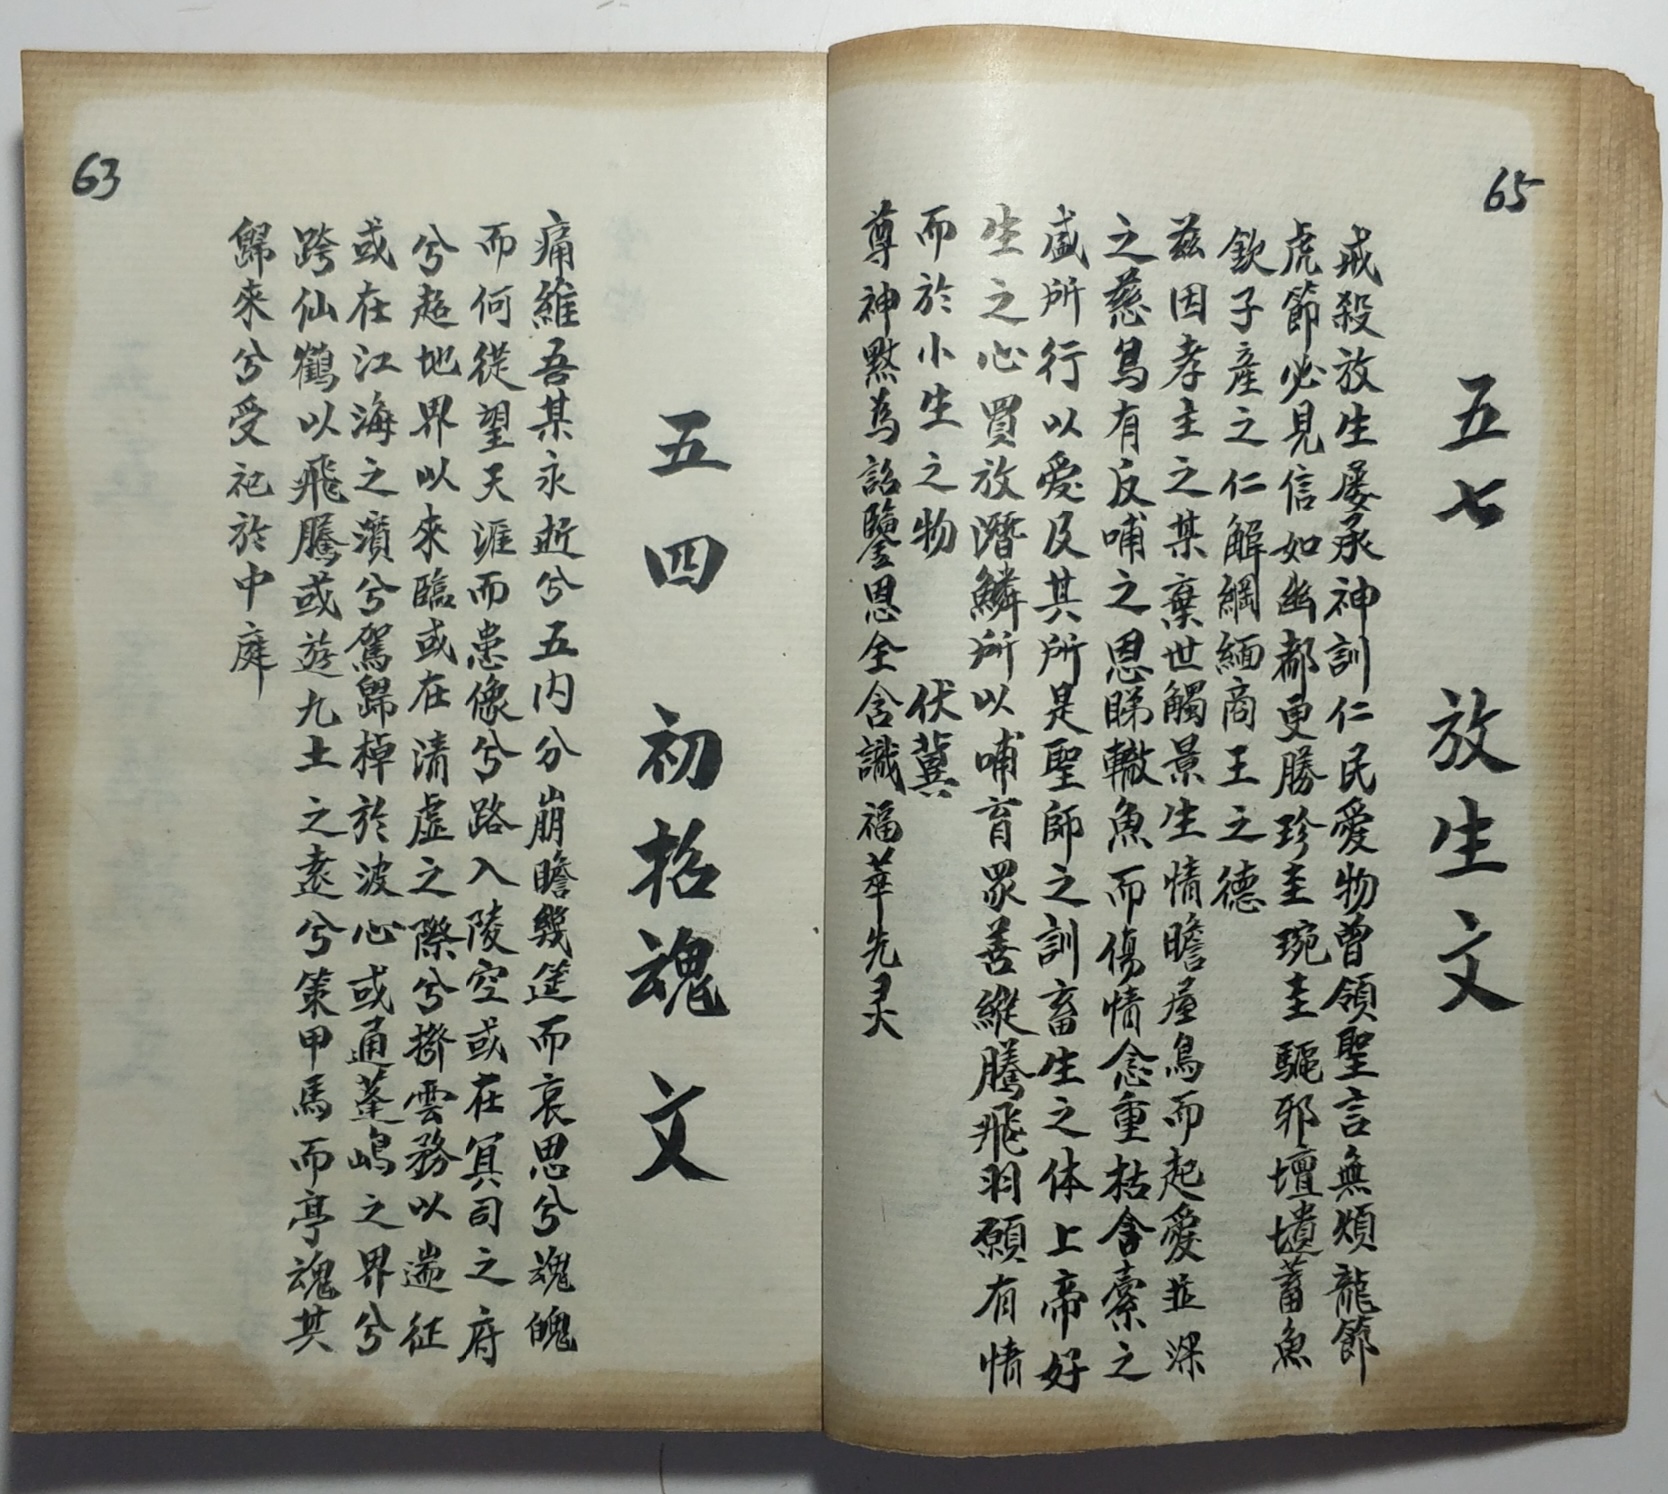 65
五七 放生文
戒殺放生屡承神訓仁民愛物曾領聖言無煩龍節
虎節必見信如幽都更勝珍圭琬圭驅邪壇壝蓄魚
欽子產之仁解綱緬商王之德
兹因孝主之某棄世觸景生情瞻屋鳥而起愛並深
之慈鳥有反哺之恩睇轍魚而傷情念重枯含索之
盛所行以愛及其所是聖師之訓畜生之体上帝好
生之心買放潛鱗所以哺育眾善縱騰飛羽願有情
而於小生之物 伏冀
尊神默為詔鑒恩全含識福莘先灵
63
五四 初招魂文
痛維吾某永逝兮五内分崩瞻幾筵而哀思兮魂魄
而何從望天涯而患像兮路入陵空或在冥司之府
兮超地界以來臨或在清虛之際兮擠雲務以遄征
或在江海之濱兮駕歸棹於波心或通蓬嶋之界兮
跨仙鶴以飛騰或遊九土之遠兮策甲馬而亭魂其
歸來兮受祀於中庭